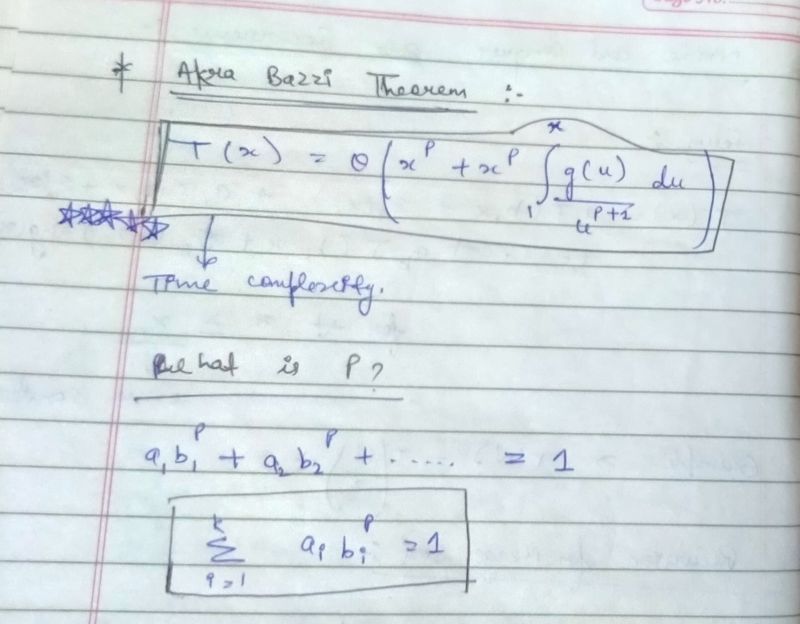 * Akra Bazzi Theorem :-
T(x) = θ(x^p + x^p ∫_1^x g(u)/u^{p+1} du)
Time complexity.
What is P?
a₁b₁^p + a₂b₂^p + ..... = 1
∑_{i=1}^{k} aᵢ bᵢ^p = 1